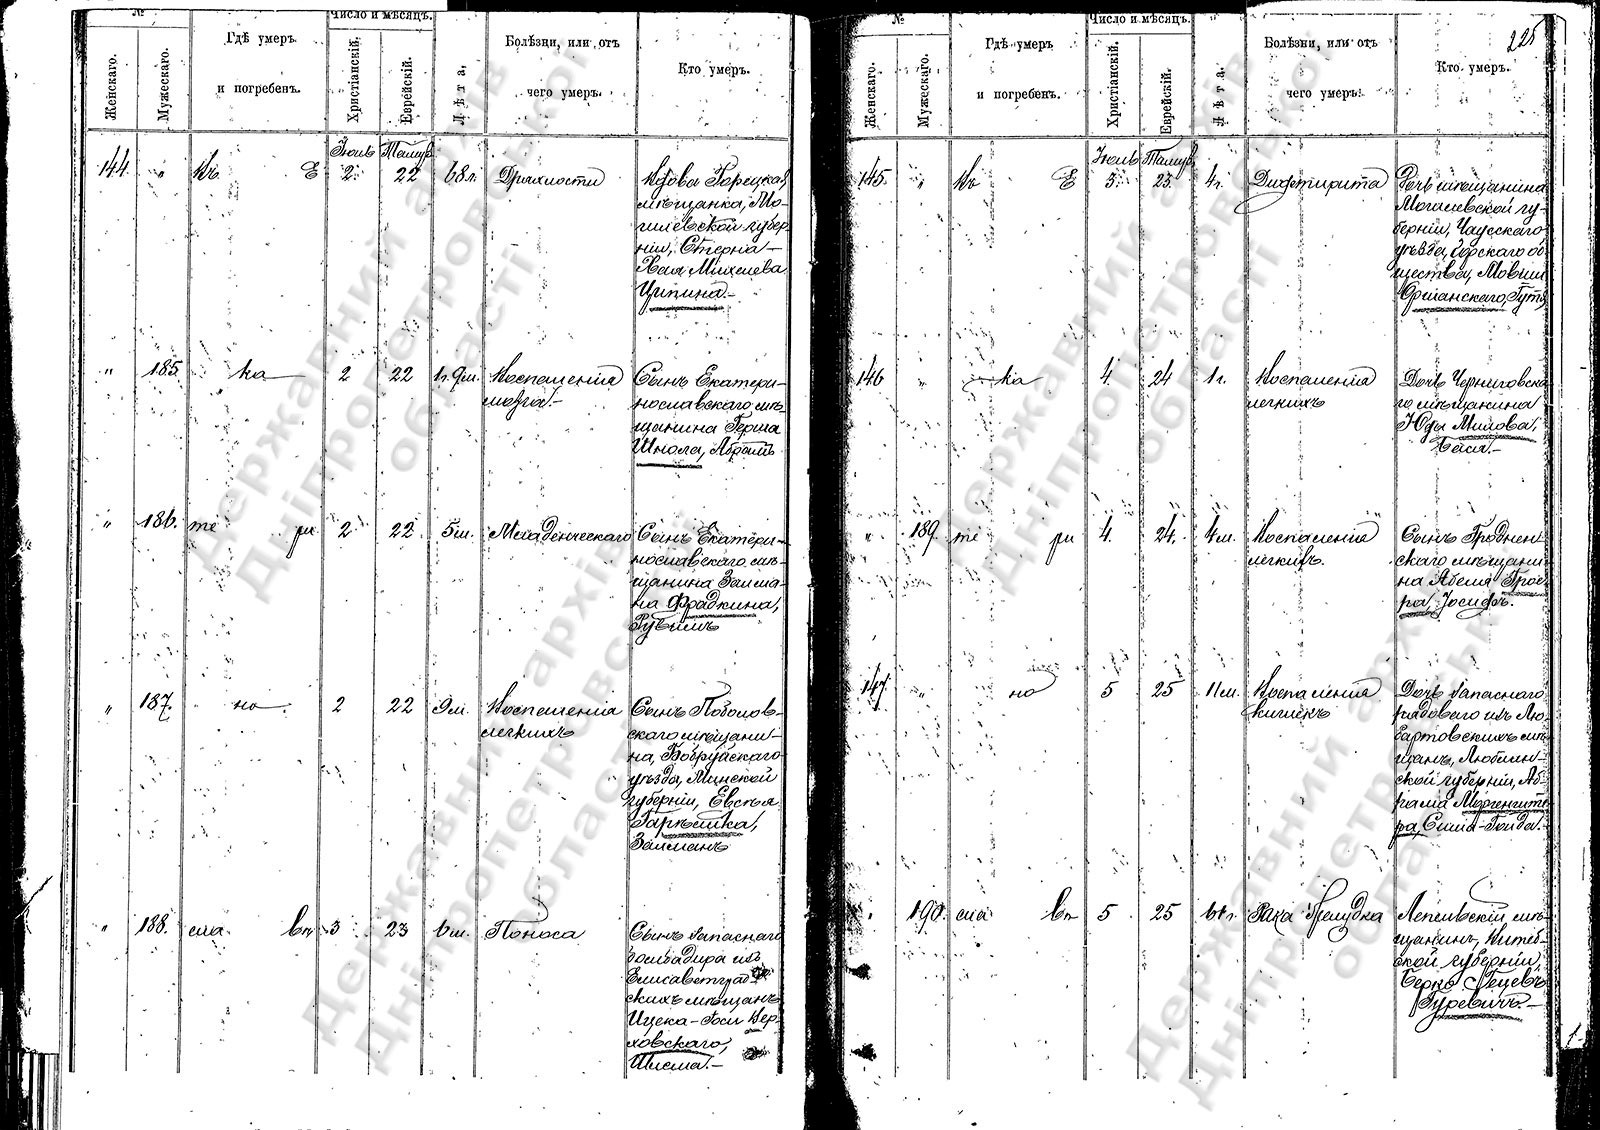 №
Число и мѣсяцъ.
Женскаго.
Мужескаго.
Гдѣ умеръ
и погребенъ.
Христіанскій.
Еврейскій.
Лѣта.
Болѣзни, или отъ
чего умеръ.
Кто умеръ.
Іюль Тамуз
144 " Въ Е 2 22 68 л. Дряхлости
Вдова Горецкая
мѣщанка, Мо-
гилевской губер-
ніи, Стерна-
Хая Михелева
Ципина.-
" 185 ка 2 22 1 г. 9 м. Воспаленія
мозга.-
Сынъ Екатери-
нославскаго мѣ-
щанина Герша
Школа, Абрамъ
" 186. те ри 2 22 5 м. Младенческаго
Сынъ Екатери-
нославскаго мѣ-
щанина Залма-
на Фрадкина,
Рувимъ
" 187. но 2 22 9 м. Воспаленія
легкихъ
Сынъ
скаго мѣщани-
на, Бобруйскаго
уѣзда, Минской
губерніи, Евсѣя
Залманъ
" 188. сла 3 23 6 м. Поноса
Сынъ запаснаго
бомбадира изъ
Елисаветград-
скихъ мѣщанъ
Ицека-Іоси Вер-
ховскаго,
Шлема.-
225
№
Число и мѣсяцъ.
Женскаго.
Мужескаго.
Гдѣ умеръ
и погребенъ.
Христіанскій.
Еврейскій.
Лѣта.
Болѣзни, или отъ
чего умеръ.
Кто умеръ.
Іюль Тамуз
145. " Въ Е 3. 23. 4 г. Дифтирита
Дочь мѣщанина
Могилевской гу-
берніи, Чаусскаго
уѣзда, Горскаго об-
щества, Мовши
Оршанскаго,
146 " ка 4. 24 1 г. Воспаленія
легкихъ
Дочь Черниговска-
го мѣщанина
Юды
Бася.-
" 189. те ри 4. 24. 4 м. Воспаленія
легкихъ.
Сынъ Гроднен-
скаго мѣщани-
на Абеля
Іосифъ.
147. " но 5 25 11 м. Воспаленія
кишекъ
Дочь запаснаго
рядоваго изъ Лю-
бартовскихъ мѣ-
щанъ, Люблин-
ской губерніи, Аб-
рама Моргенште-
ра, Сима-Гольда.-
190. сла 5 25 Рака Желудка
Лепельскій мѣ-
щанинъ, Витеб-
ской губерніи,
Берко Гецевъ
Гуревичъ.-
Державний архів
Дніпропетровської
області